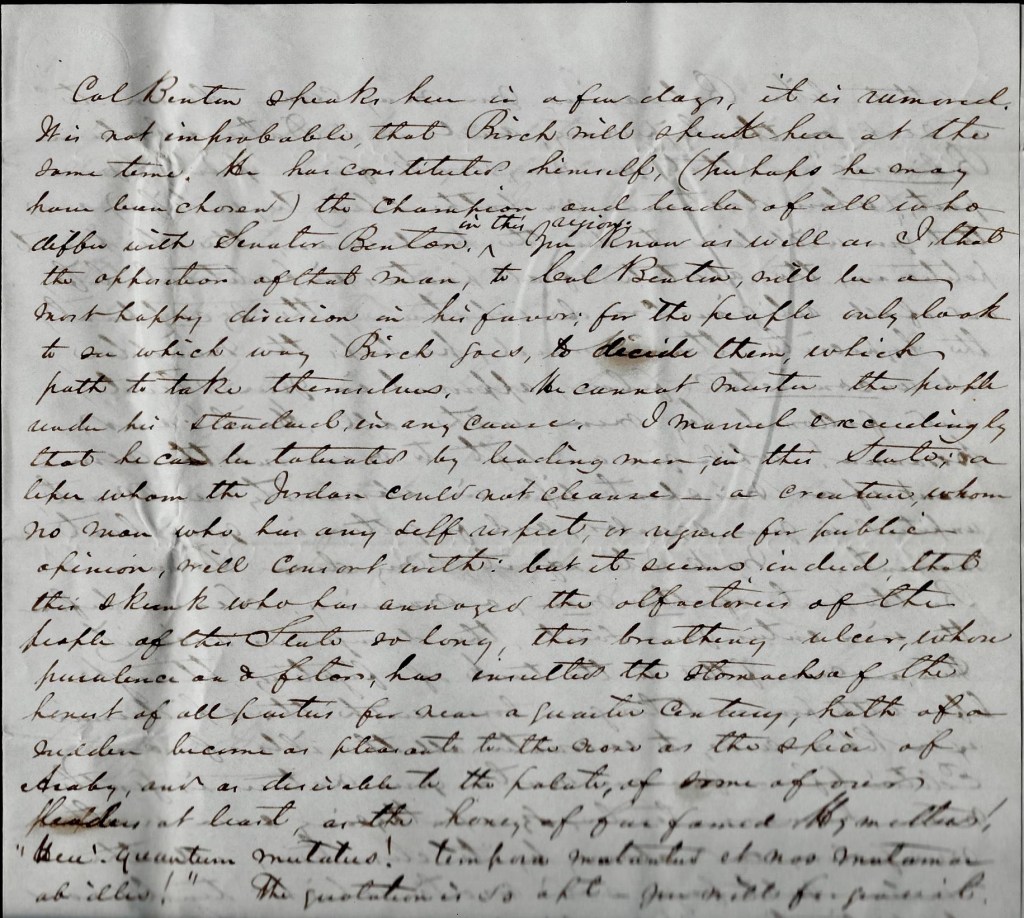 Col Benton speaks here in a few days, it is rumored.
It is not improbable, that Birch will speak here at the
same time. He has constituted himself, (perhaps he may
have been chosen) the champion and leader of all who
in this region
differ with Senator Benton. ^ You know as well as I, that
the opposition of that man, to Col Benton, will be a
most happy division in his favor; for the people only look
to see which way Birch goes, to decide them, which
path to take themselves. He cannot muster the people
under his standard, in any cause. I marvel exceedingly
that he can be tolerated by leading men, in this State; a
leper whom the Jordan could not cleanse – a creature, whom
no man who has any self respect, or regard for public
opinion, will consort with: but it seems indeed, that
this skunk who has annoyed the olfactories of the
people of this State so long, this breathing ulcer, whose
purulence and fetor, has insulted the stomachs of the
honest of all parties for near a quarter century, hath of a
sudden become as pleasant to the nose as the spices of
Araby, and as desirable to the palate, of some of our
leaders at least, as the honey of far famed Hymettus!
"Heu! quantum mutatus! tempora mutantur et nos mutamur
ab illis!" The quotation is so apt you will forgive it.